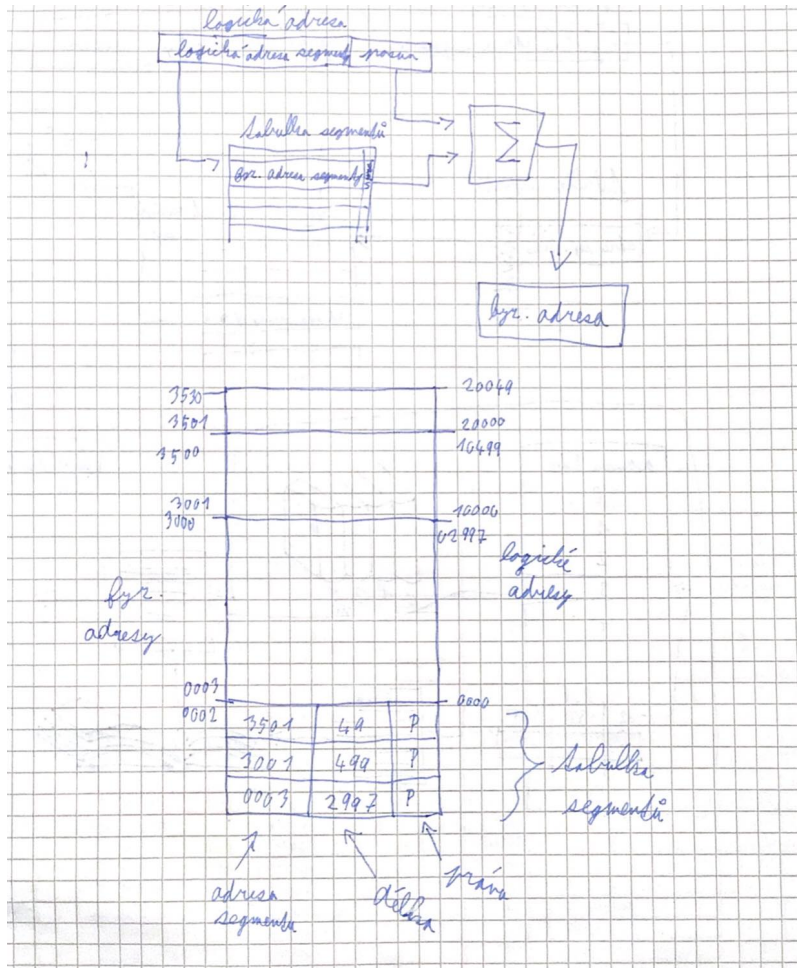 logická adresa
logická adresa segmentu posun
tabulka segmentů
fyz. adresa segmentu
Σ
fyz. adresa
3530 20049
3501 20000
3500 10499
3001 10000
3000 02997
logické
adresy
fyz.
adresy
0003 0000
0002
3501 49 P
3001 499 P
0003 2997 P
tabulka
segmentů
adresa
segmentu
délka
práva